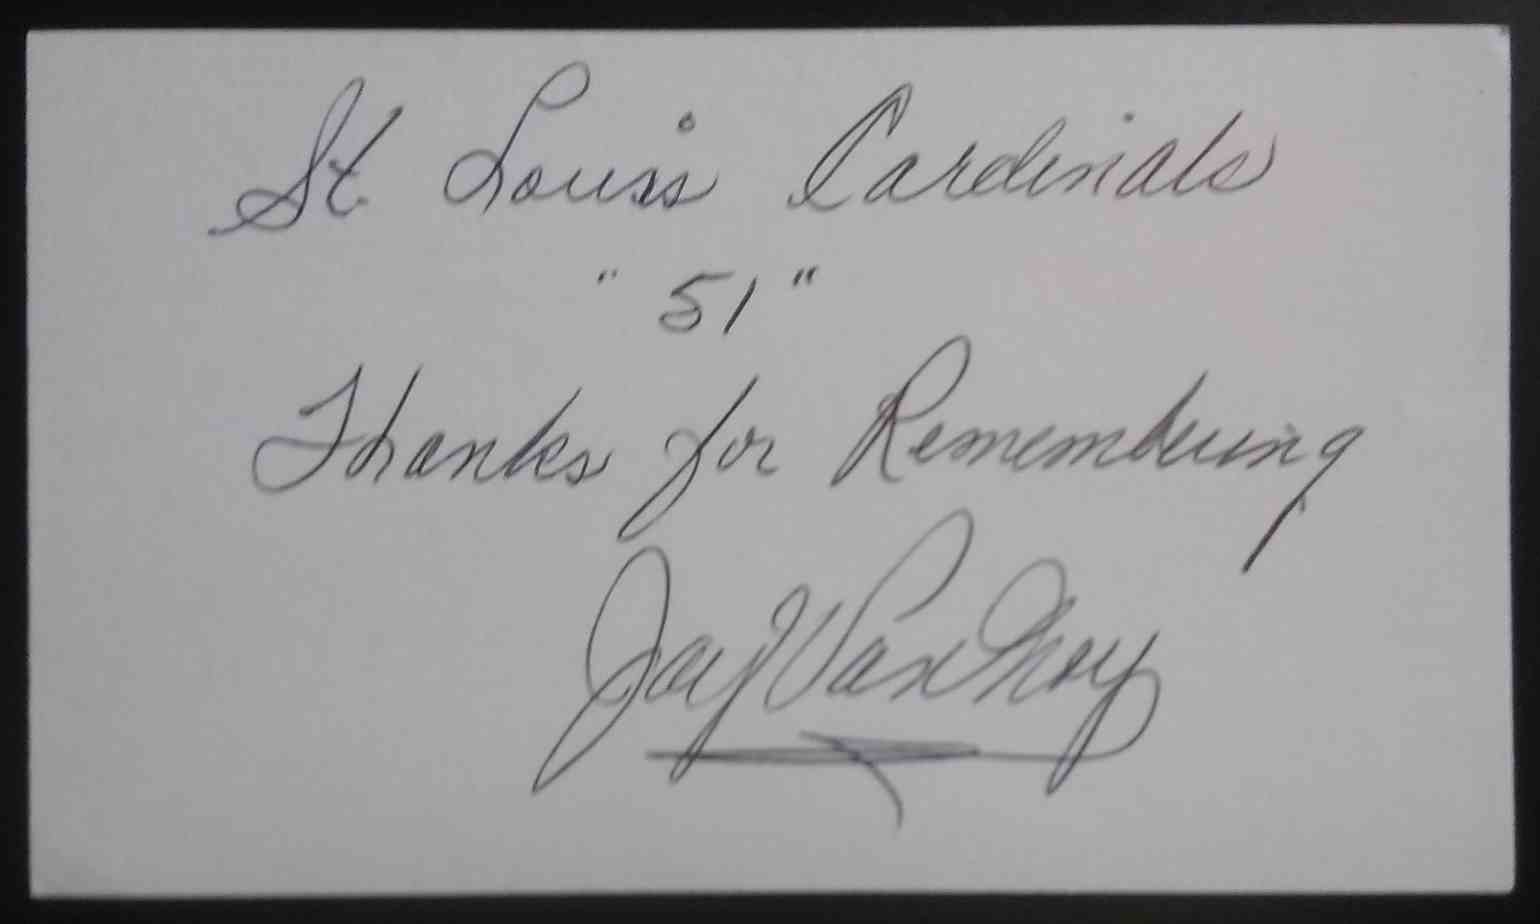 St. Louis Cardinals
"51"
Thanks for Remembering
Jay Van Noy